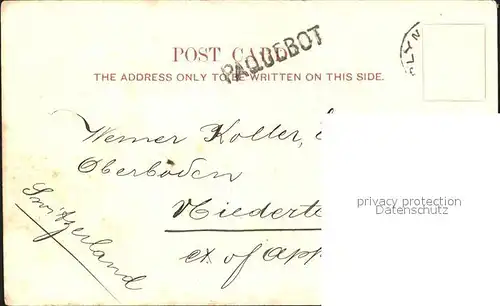 PAQUEBOT
POST CARD
THE ADDRESS ONLY TO BE WRITTEN ON THIS SIDE.
Werner Koller,
Oberboden
Niederte
ct. of App
Switzerland
privacy protection
Datenschutz